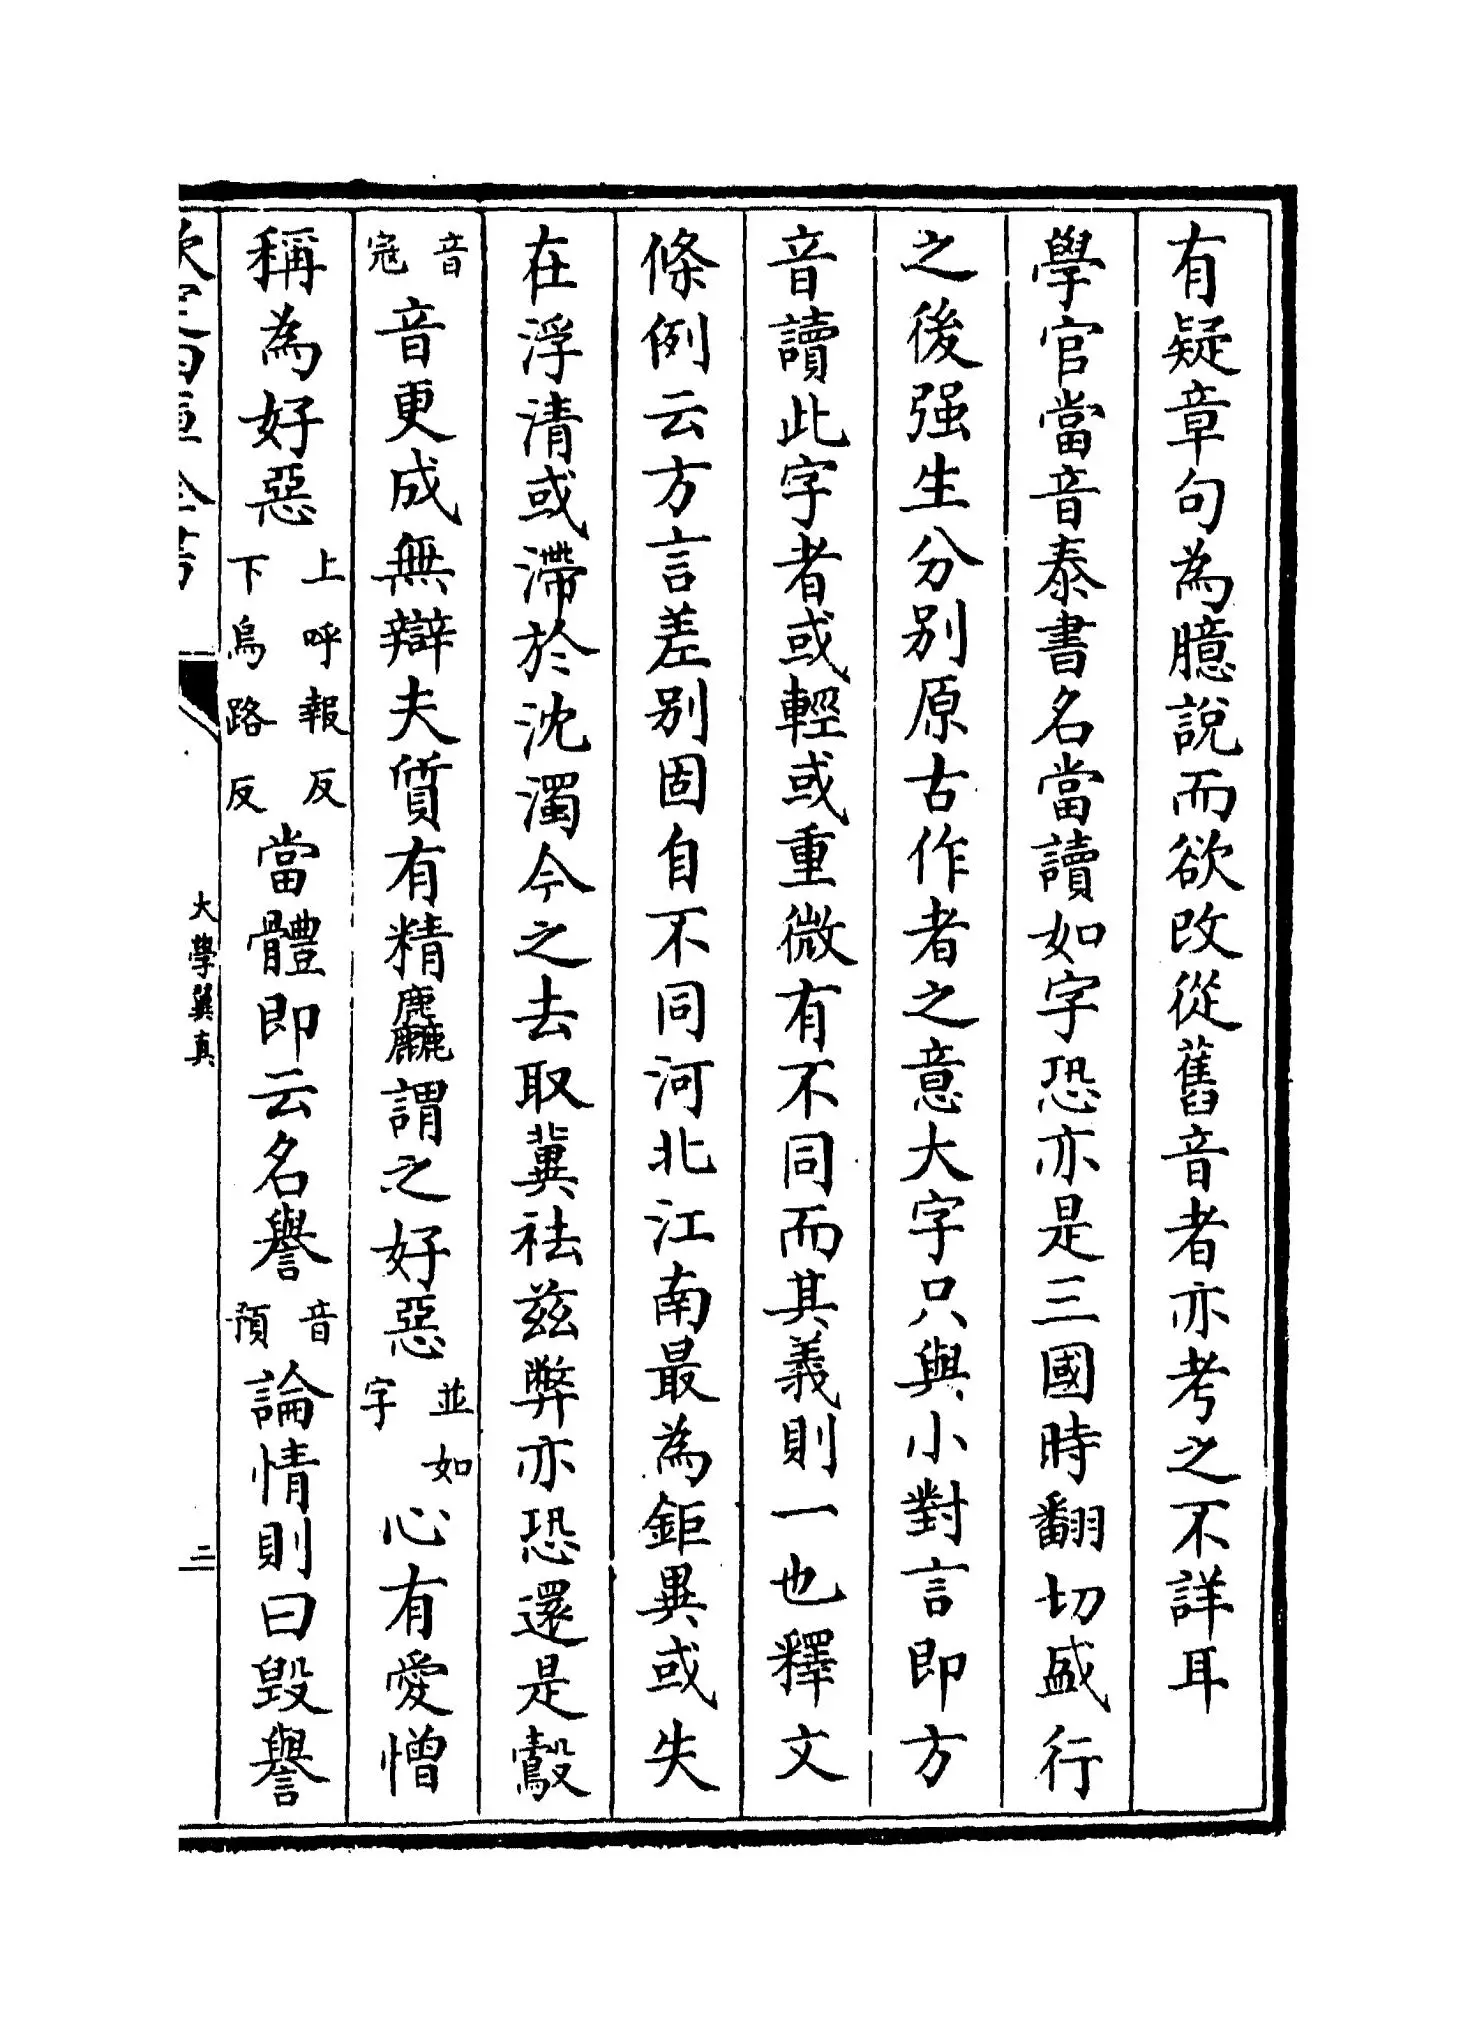 有疑章句為臆說而欲改從舊音者亦考之不詳耳
學官當音泰書名當讀如字恐亦是三國時翻切盛行
之後强生分别原古作者之意大字只與小對言即方
音讀此字者或輕或重微有不同而其義則一也釋文
條例云方言差别固自不同河北江南最為鉅異或失
在浮清或滯於沈濁今之去取冀祛兹弊亦恐還是鷇
音宼音更成無辯夫質有精麤謂之好惡並如字心有愛憎
稱為好惡上呼報反下烏路反當體即云名譽音預論情則曰毁譽
欽定四庫全書
大學翼真
二